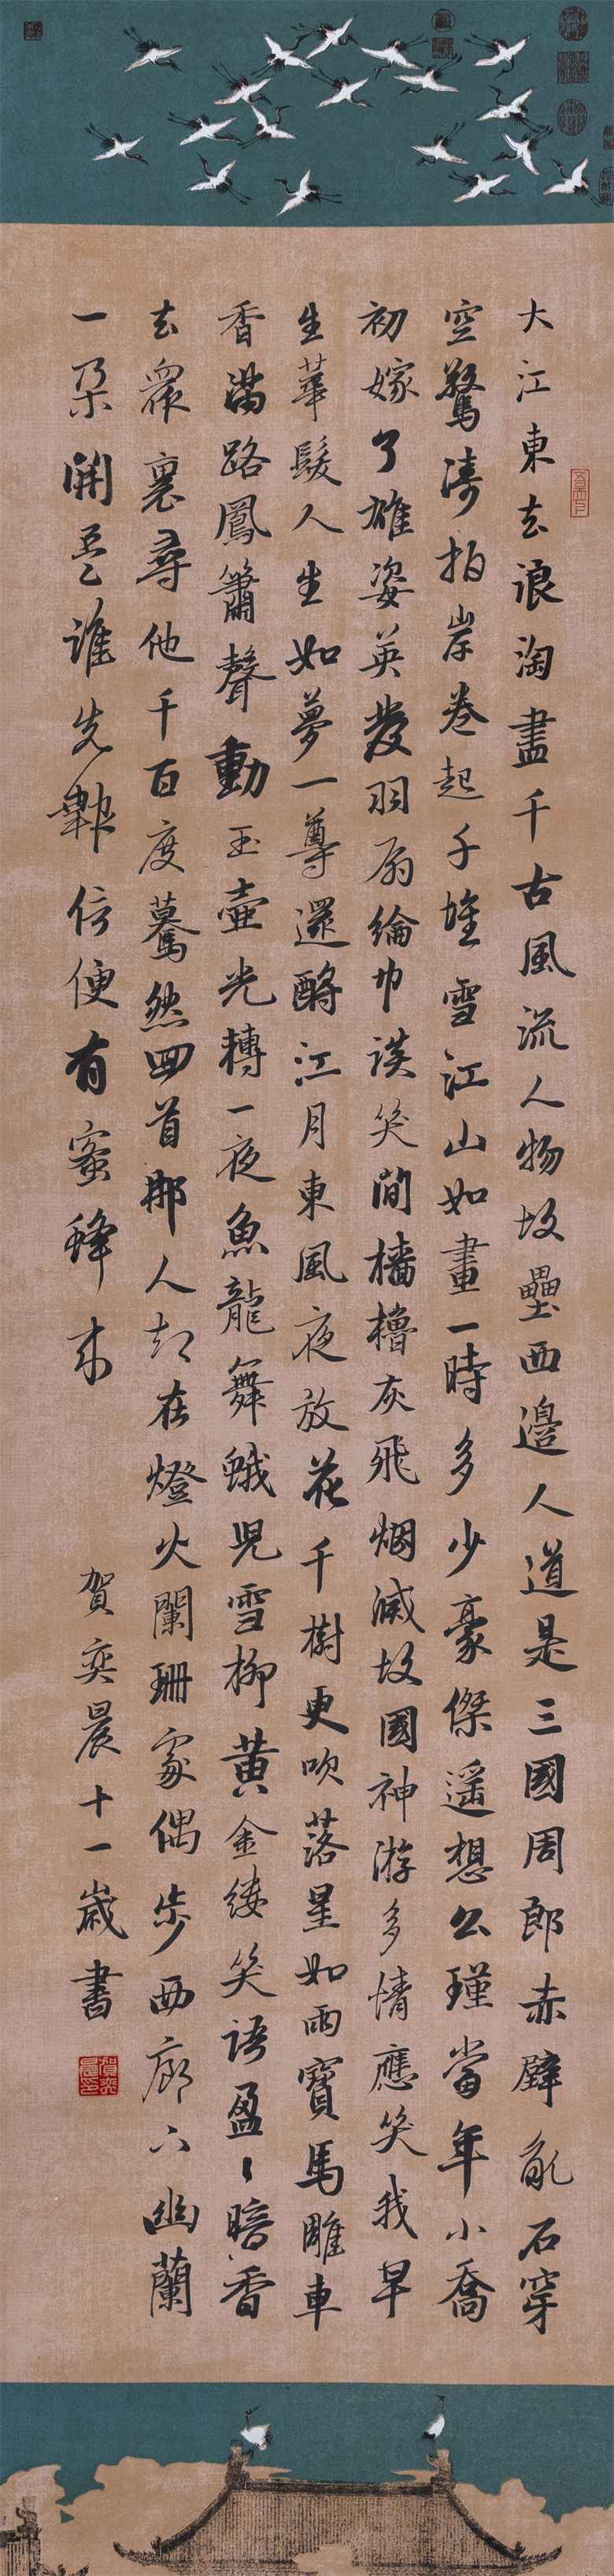 大江東去浪淘盡千古風流人物故壘西邊人道是三國周郎赤壁亂石穿
空驚濤拍岸卷起千堆雪江山如畫一時多少豪傑遥想公瑾當年小喬
初嫁了雄姿英發羽扇綸巾談笑間檣櫓灰飛烟滅故國神游多情應笑我早
生華髮人生如夢一尊還酹江月東風夜放花千樹更吹落星如雨寶馬雕車
香滿路鳳簫聲動玉壺光轉一夜魚龍舞蛾兒雪柳黃金縷笑語盈〻暗香
去衆裏尋他千百度驀然回首那人却在燈火闌珊處偶步西廊下幽蘭
一朵開是誰先報信便有蜜蜂來
賀奕晨十一歲書
賀奕晨印